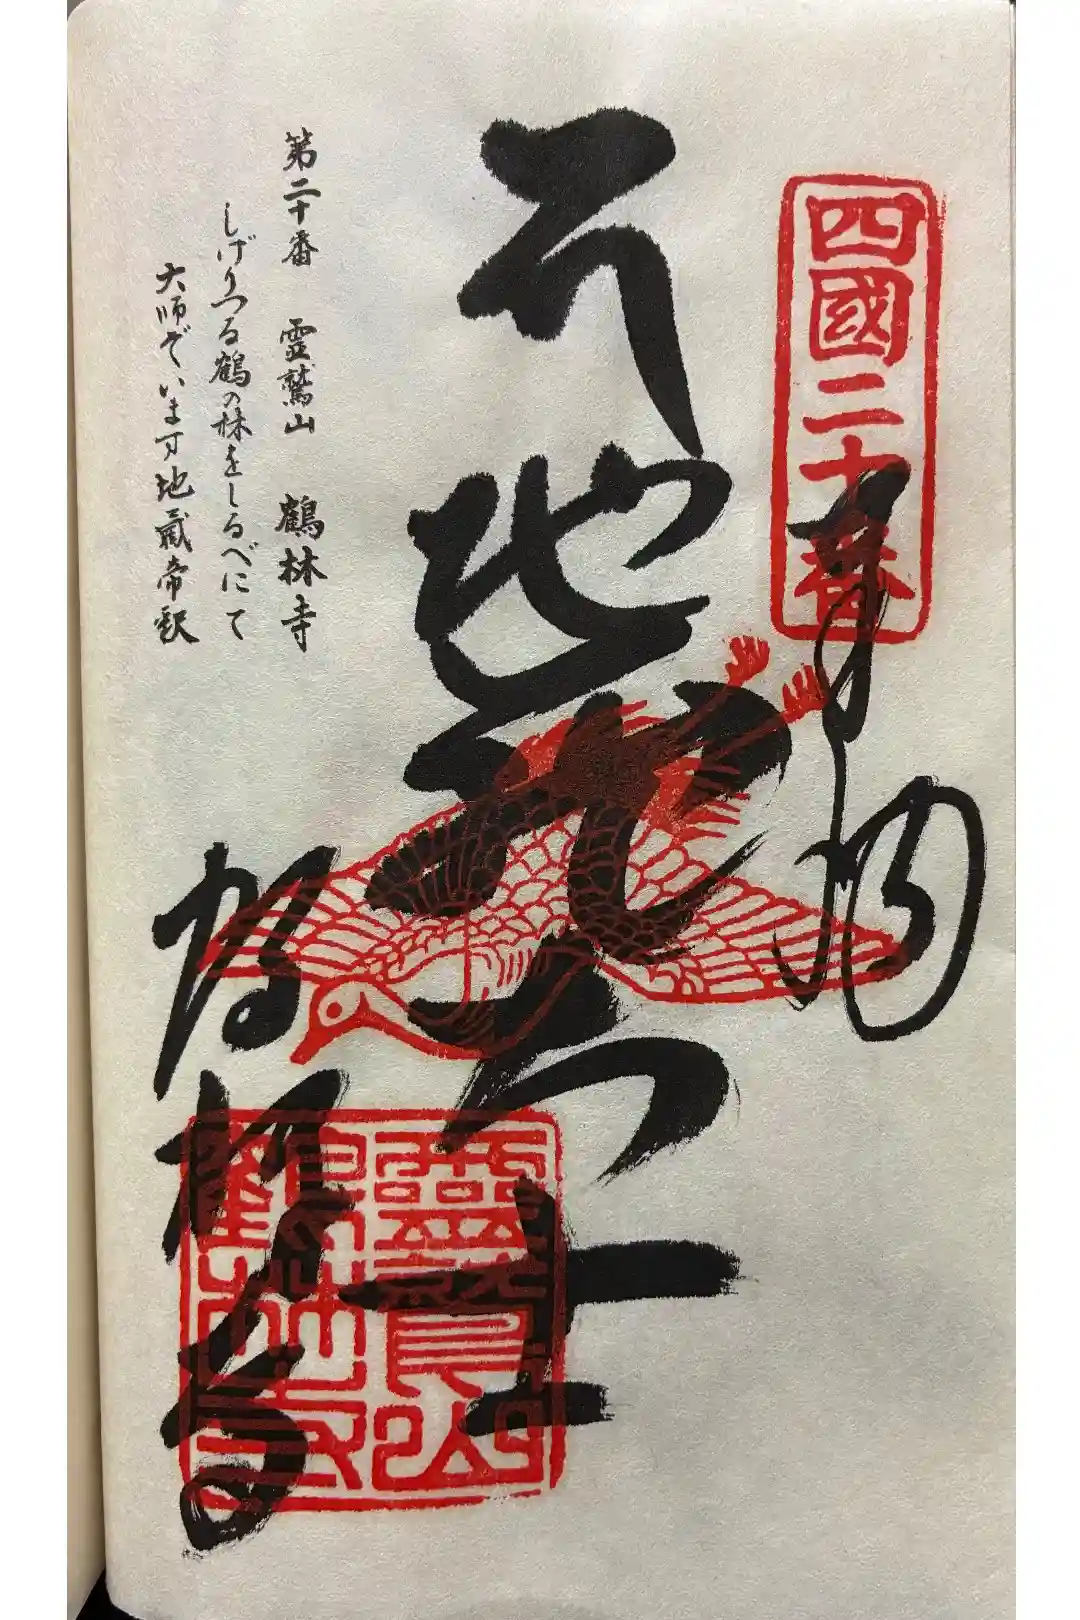 四國二十番
奉納
地蔵大士
鶴林寺
靈鷲山鶴林寺
第二十番 霊鷲山 鶴林寺
しげりつる鶴の林をしるべにて
大師ぞいます地蔵帝釈